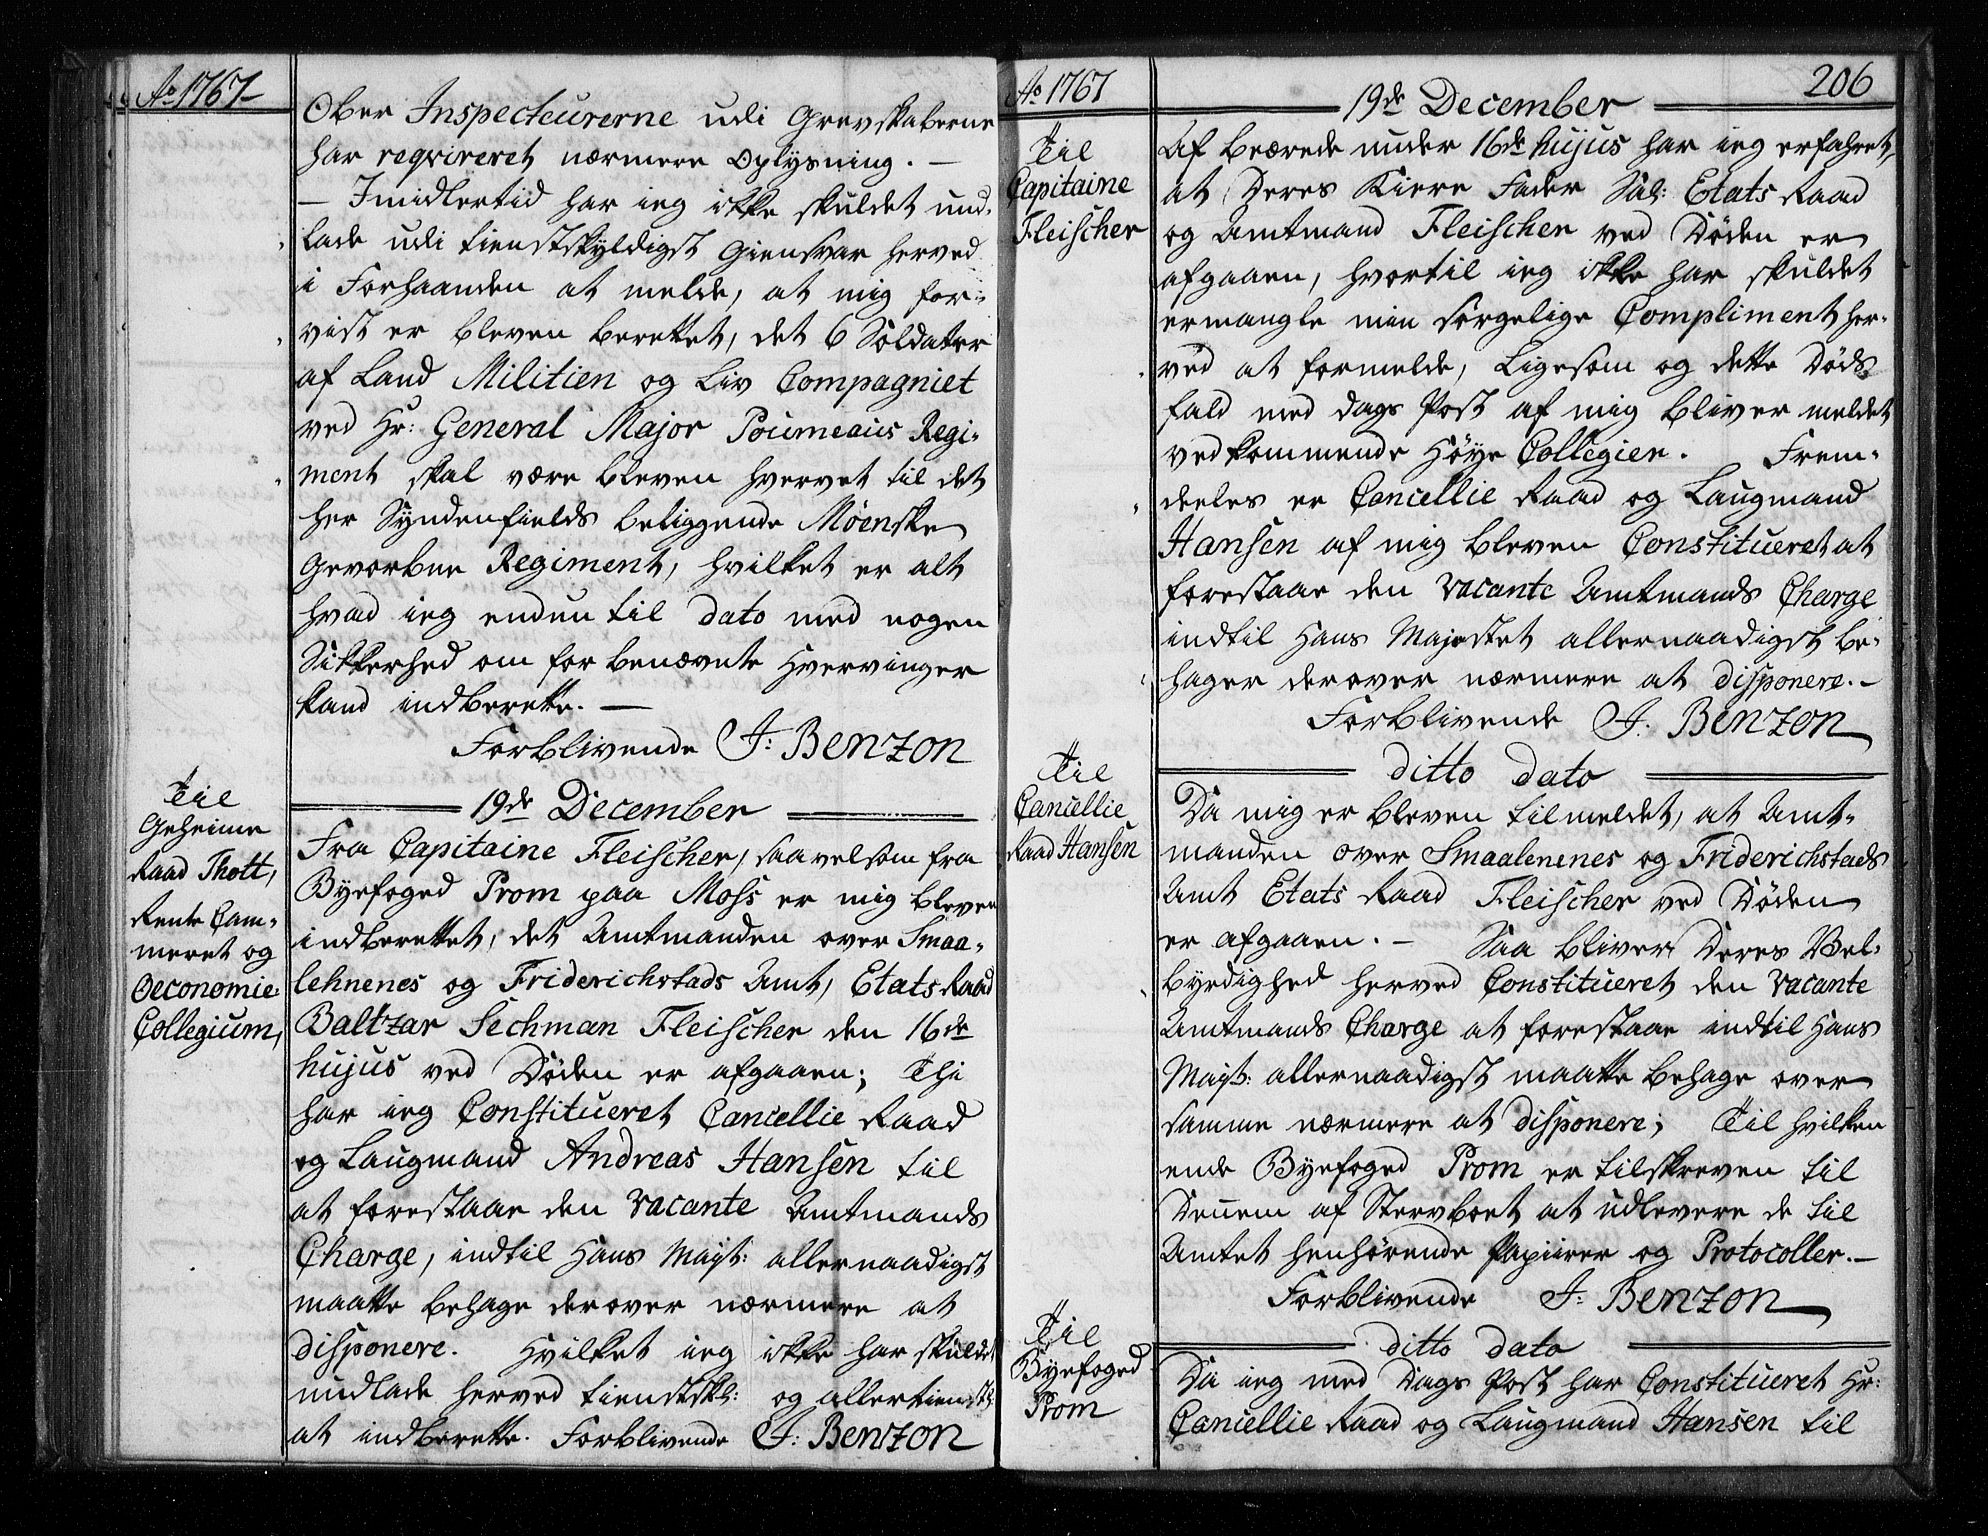 Ao 1767
Ober Inspecteurerne udi Grevskaberne
har reqvireret nærmere Oplysning. —
— Imidlertid har ieg ikke skuldet und-
lade udi tienstskyldigst Giensvar herved
i Forhaanden at melde, at mig for-
vist er bleven berettet, det 6 Soldater
af Land Militien og Liv Compagniet
ved Hr: General Major Poumeaus Regi-
ment skal være bleven hvervet til det
her Syndenfields beliggende Møenske
Gevorbne Regiment, hvilket er alt
hvad ieg endnu til dato med nogen
Sikkerhed om forbenævnte Hvervinger
kand indberette. —
Forblivende J: Benzon
19de December
Til
Geheime
Raad Thott,
Rente Cam-
meret og
Oeconomie-
Collegium,
Fra Capitaine Fleischer, saavelsom fra
Byefoged Prom paa Moss er mig bleven
indberettet, det Amtmanden over Smaa-
lehnenes og Friderichstads Amt, Etats Raad
Baltzar Sechman Fleischer den 16de
hujus ved Døden er afgaaen; Thi
har ieg Constitueret Cancellie Raad
og Laugmand Andreas Hansen til
at forestaae den vacante Amtmands
Charge, indtil Hans Mayt: allernaadigst
maatte behage derover nærmere at
disponere. Hvilket ieg ikke har skuldet
undlade herved tienstskl: og allertienstl:
at indberette. Forblivende J: Benzon
Ao 1767
206
19de December
Til
Capitaine
Fleischer
Af beærede under 16de hujus har ieg erfahret,
at Deres Kiere Fader Sal: Etats Raad
og Amtmand Fleischer ved Døden er
afgaaen, hvortil ieg ikke har skuldet
ermangle min sørgelige Compliment her-
ved at formelde, Ligesom og dette Døds
fald med Dags Post af mig bliver meldet
vedkommende Høye Collegier. Frem-
deeles er Cancellie Raad og Laugmand
Hansen af mig bleven Constitueret at
forestaae den vacante Amtmands Charge
indtil Hans Majestet allernaadigst be-
hager derover nærmere at disponere. —
Forblivende J: Benzon
ditto dato
Til
Cancellie
Raad Hansen
Da mig er bleven tilmeldet, at Amt-
manden over Smaalenenes og Friderichstads
Amt Etats Raad Fleischer ved Døden
er afgaaen. — Saa bliver Deres Vel-
byrdighed herved Constitueret den vacante
Amtmands Charge at forestaae indtil Hans
Mayt: allernaadigst maatte behage over
samme nærmere at disponere; Til hvilken
ende Byefoged Prom er tilskreven til
Dennem af Stervboet at udlevere de til
Amtet henhørende Papiirer og Protocoller. —
Forblivende J: Benzon
ditto dato
Til
Byefoged
Prom
Da ieg med Dags Post har Constitueret Hr:
Cancellie Raad og Laugmand Hansen til